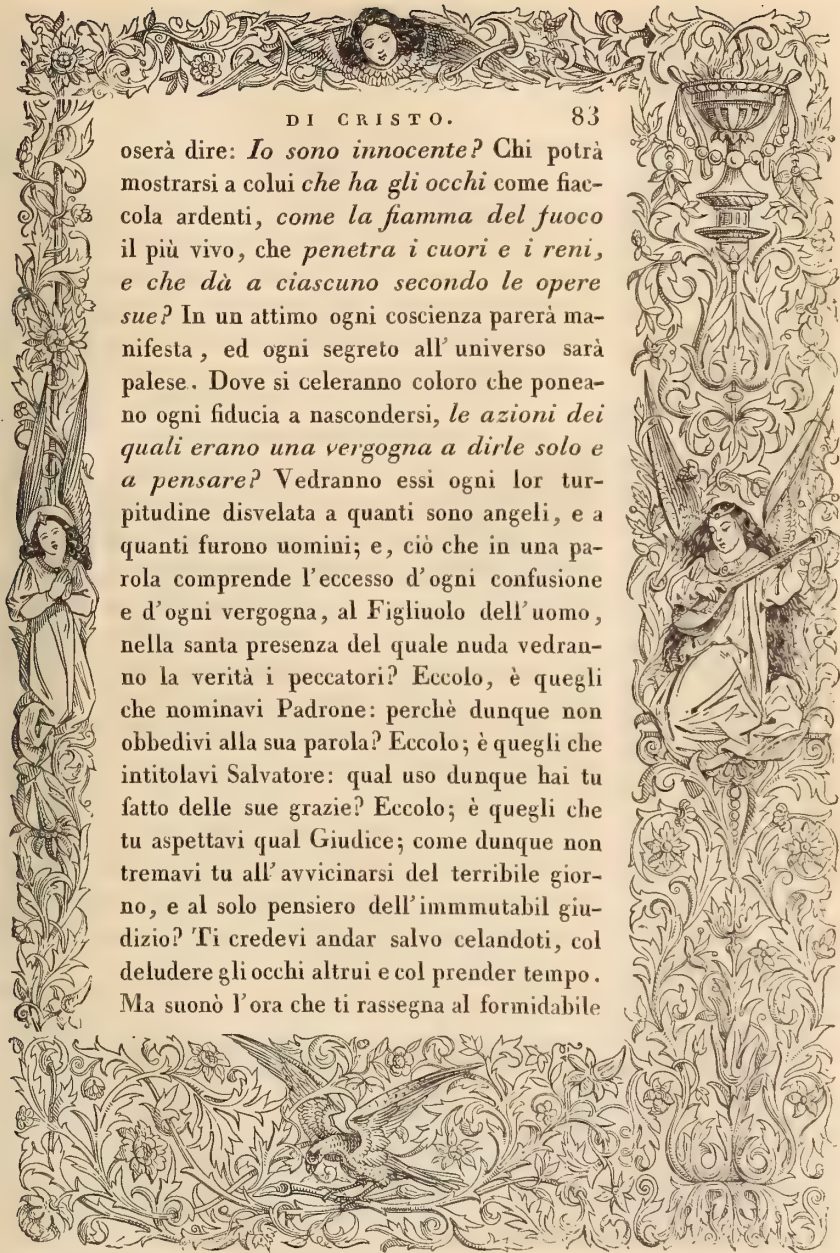 DI CRISTO. 83
oserà dire: Io sono innocente? Chi potrà
mostrarsi a colui che ha gli occhi come fiac-
cola ardenti, come la fiamma del fuoco
il più vivo, che penetra i cuori e i reni,
e che dà a ciascuno secondo le opere
sue? In un attimo ogni coscienza parerà ma-
nifesta, ed ogni segreto all'universo sarà
palese. Dove si celeranno coloro che ponea-
no ogni fiducia a nascondersi, le azioni dei
quali erano una vergogna a dirle solo e
a pensare? Vedranno essi ogni lor tur-
pitudine disvelata a quanti sono angeli, e a
quanti furono uomini; e, ciò che in una pa-
rola comprende l'eccesso d'ogni confusione
e d'ogni vergogna, al Figliuolo dell'uomo,
nella santa presenza del quale nuda vedran-
no la verità i peccatori? Eccolo, è quegli
che nominavi Padrone: perchè dunque non
obbedivi alla sua parola? Eccolo; è quegli che
intitolavi Salvatore: qual uso dunque hai tu
fatto delle sue grazie? Eccolo; è quegli che
tu aspettavi qual Giudice; come dunque non
tremavi tu all'avvicinarsi del terribile gior-
no, e al solo pensiero dell'immmutabil giu-
dizio? Ti credevi andar salvo celandoti, col
deludere gli occhi altrui e col prender tempo.
Ma suonò l'ora che ti rassegna al formidabile